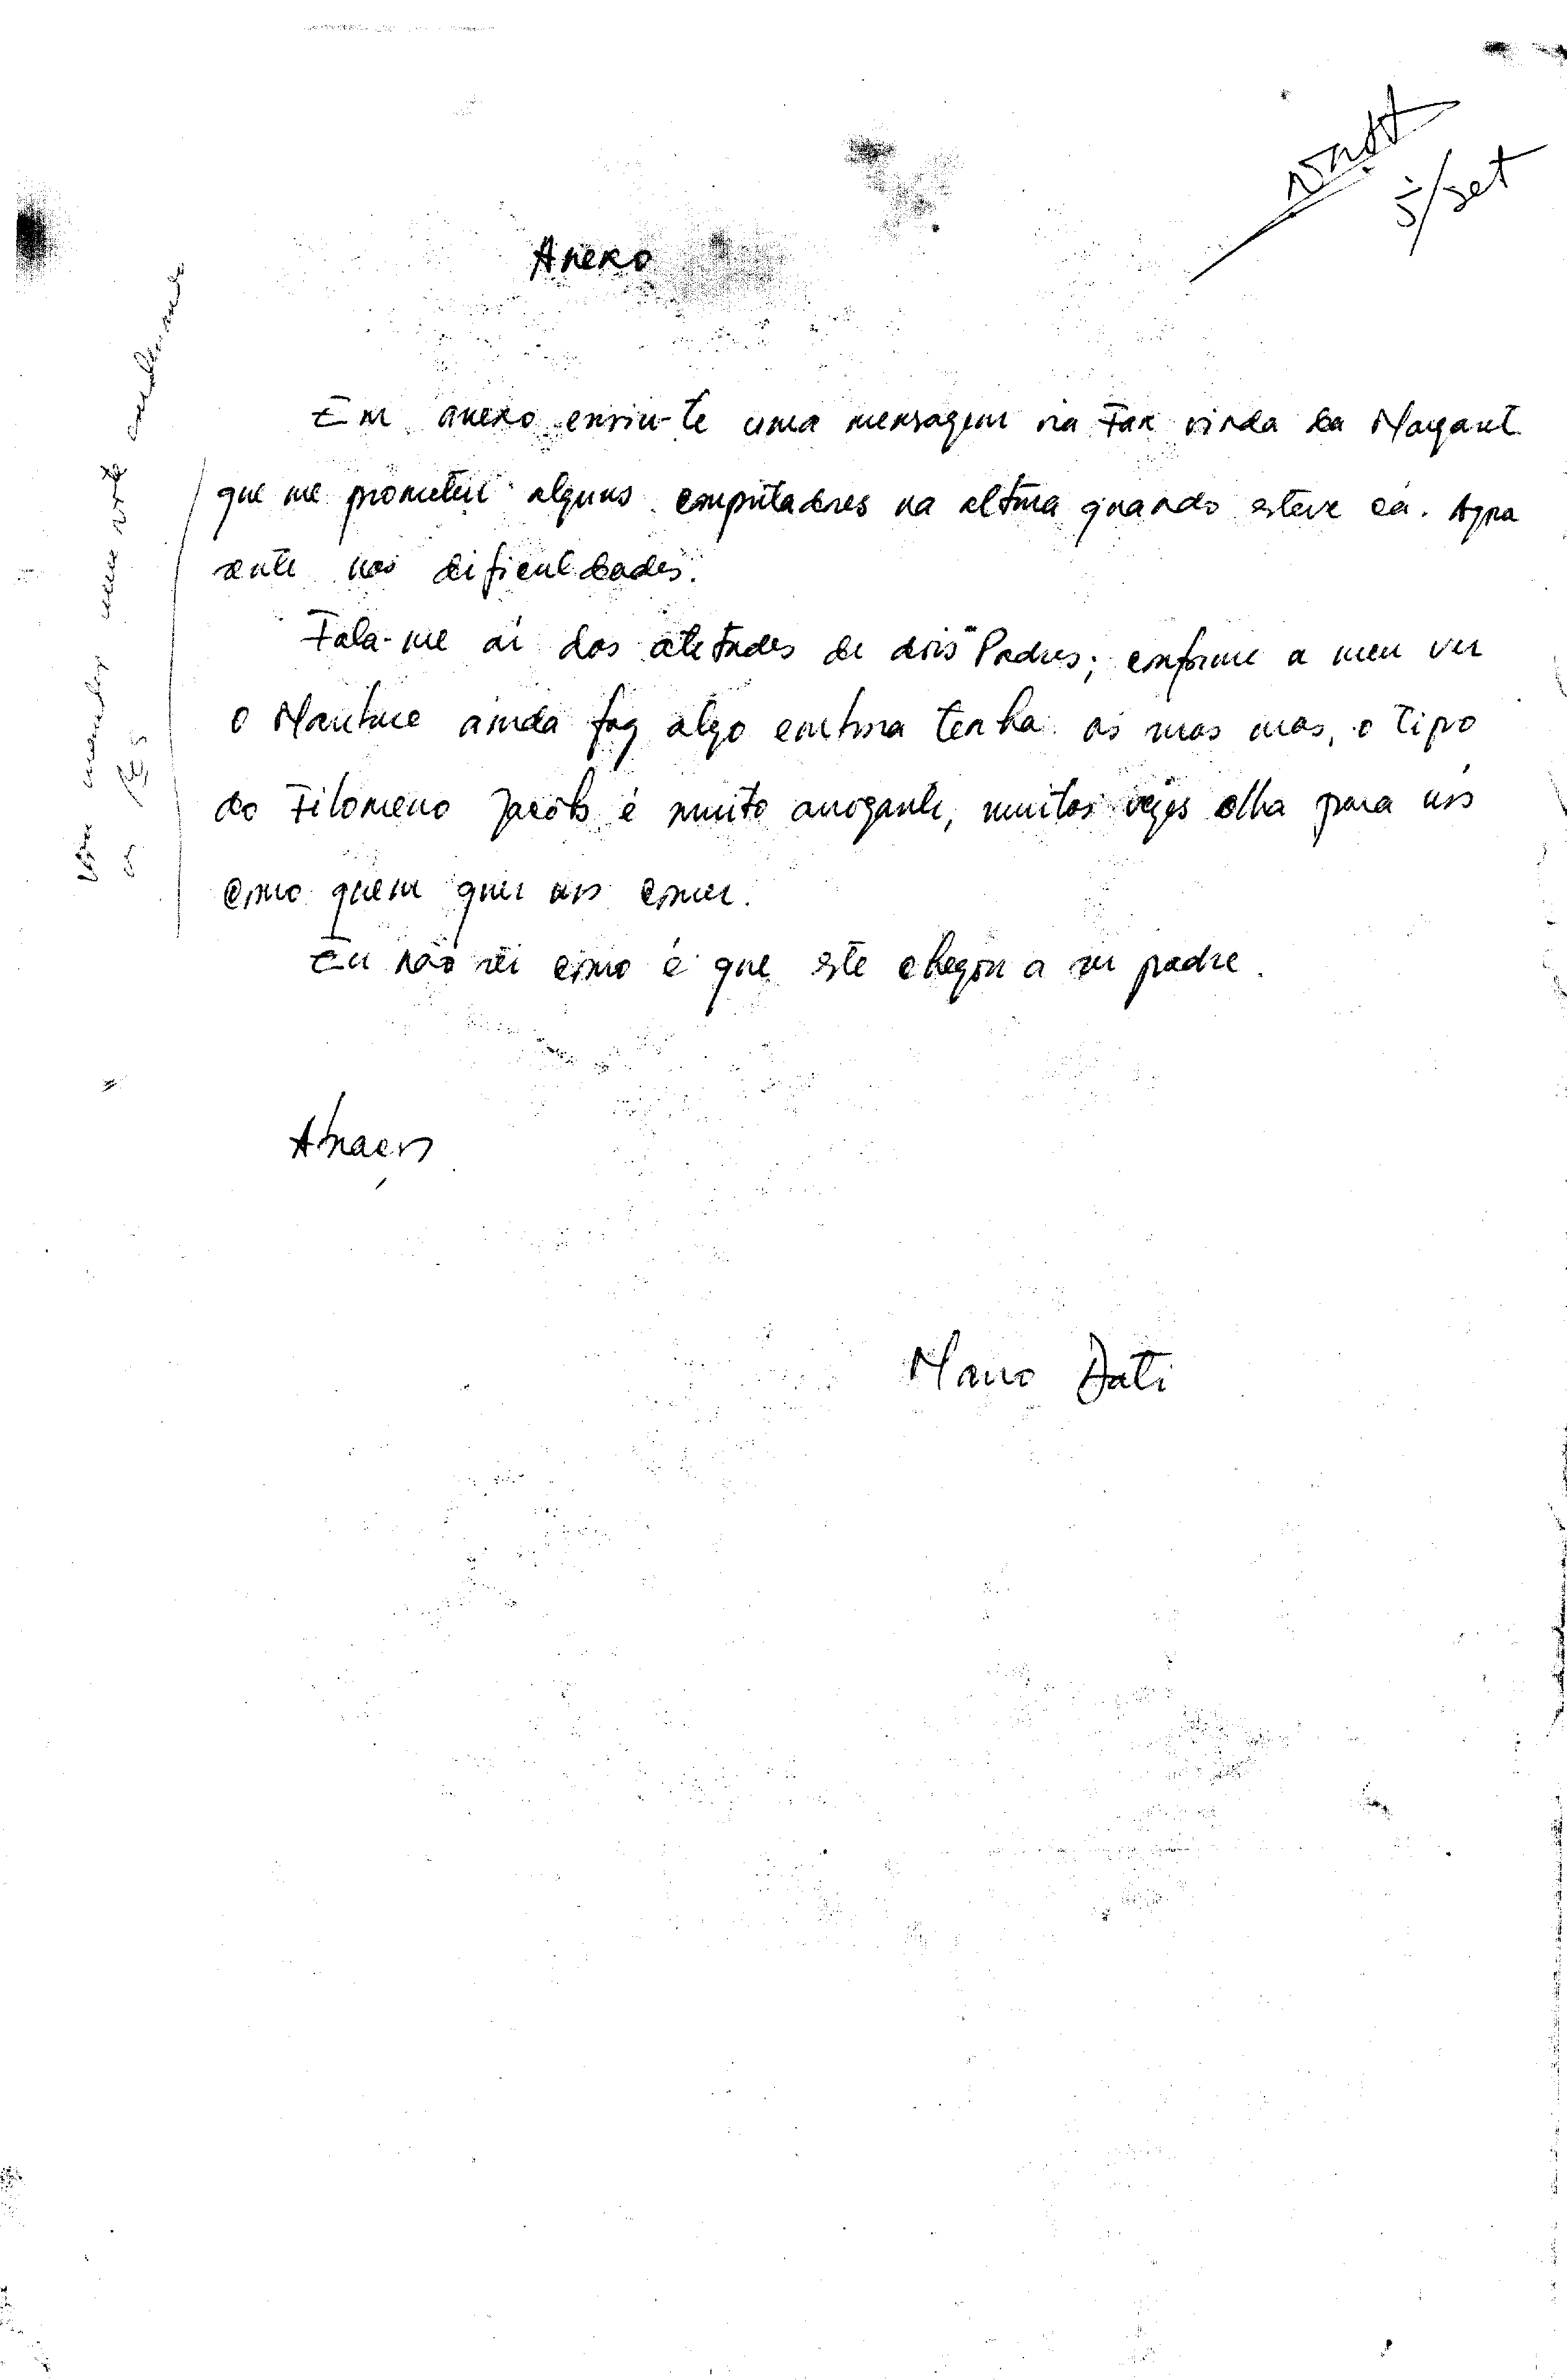 5/set
Anexo
Em anexo enviu-te uma mensagem via Fax vinda da Margaret
que me prometeu alguns computadores na altura quando esteve cá. Agora
sente nos dificuldades.
Fala-me aí das atetudes de dois Padres; conforme a meu ver
o Martinho ainda faz algo embora tenha as suas mas, o tipo
do Filomeno Jacob é muito arrogante, muitas vezes olha para nós
como quem quer nos comer.
Eu não sei como é que este chegou a ser padre.
Abraços
Mano Dati